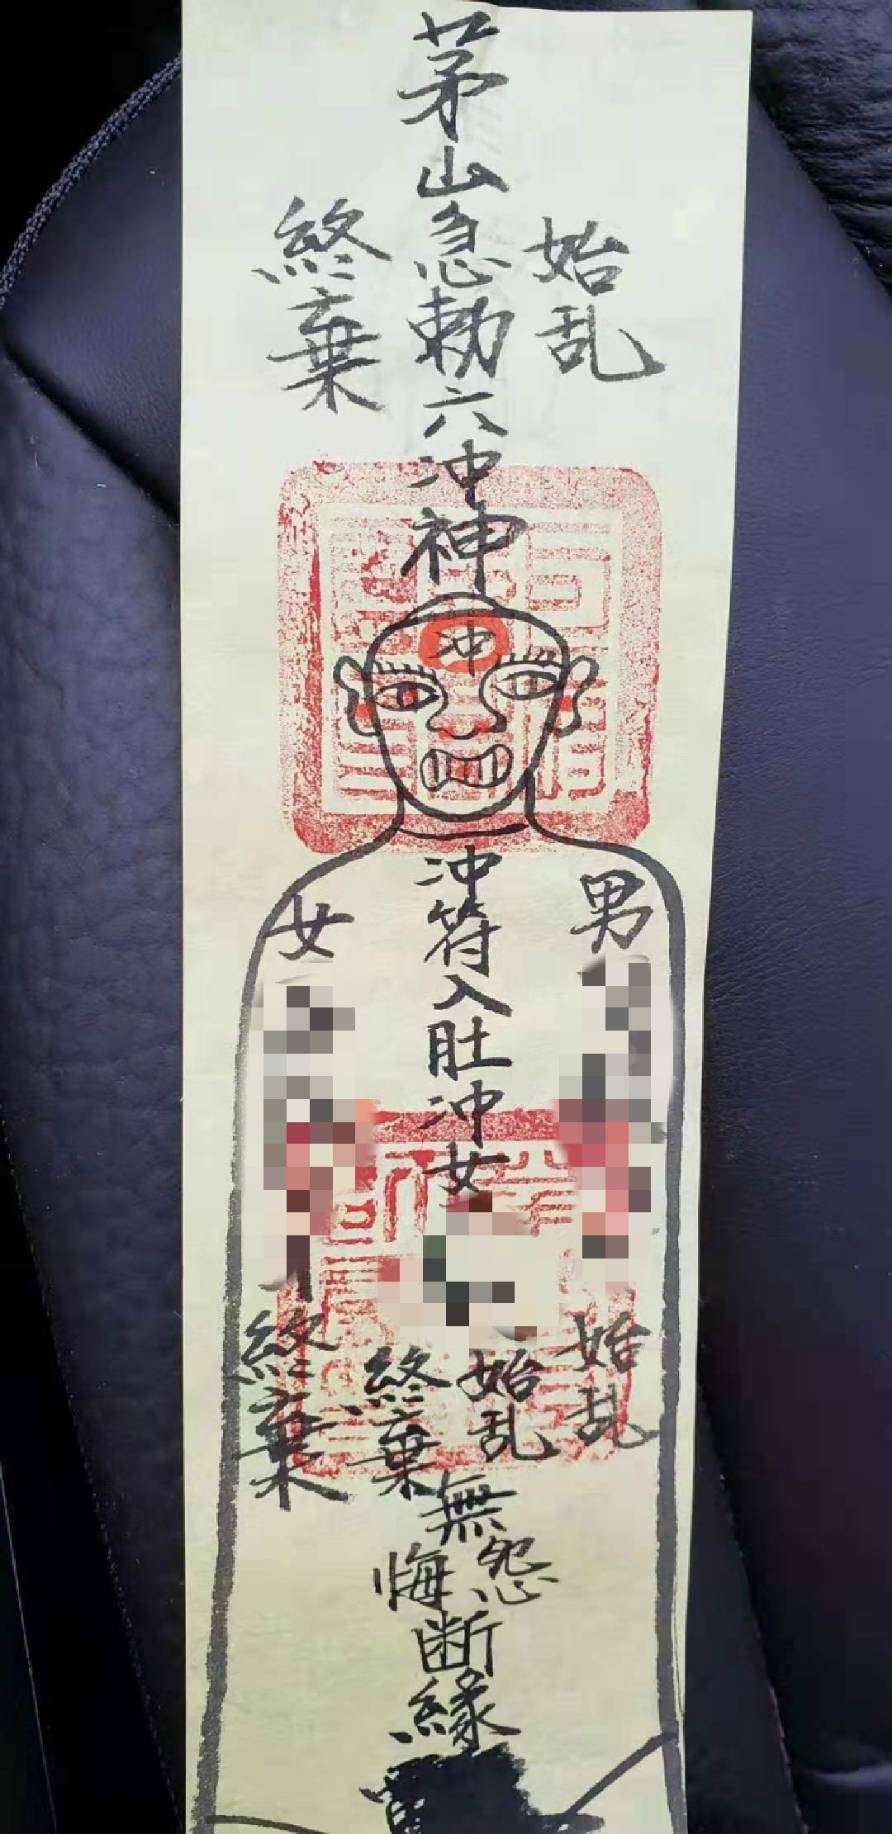 茅山急勅六冲神
始乱
終棄
冲
男
冲符入肚冲女
女
始乱
始乱
終棄
終棄
無怨悔断緣